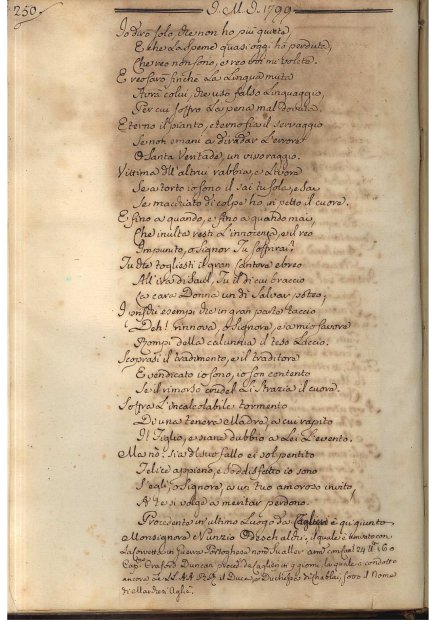 250.
J. M. J. 1799
Io dirò solo, che non ho più quiete,
E che la speme quasi oggi ho perduta,
Che reo non sono, e reo voi mi volete.
E reo sarò finchè la lingua muta
Avrà colui, che usò falso linguaggio,
Per cui soffro la pena mal dovuta.
Eterno il pianto, eterno sia il servaggio
Se non emani a diradar l'errore
O Santa Veritade, un vivo raggio.
Vittima dell'altrui rabbia, e livore
Se a torto io sono il sai tu sola, e sai
Se macchiato di colpe ho in petto il cuore.
E fino a quando, e fino a quando mai,
Che inulta resti l'innocenza, e il reo
Impunito, o Signor Tu soffrirai?
Tu che togliesti il gran Cantore ebreo
All'ira di Saul, Tu il di cui braccio
La casta Donna un dì salvar poteo,
I vetusti esempi che in gran parte taccio
Deh! rinnova, o Signore, e a mio favore
Rompi della calunnia il teso laccio.
Scoprasi il tradimento, e il traditore
E vendicato io sono, io son contento
Se il rimorso crudel li strazia il cuore.
Soffra l'incalcolabile tormento
D'una tenera Madre, a cui rapito
Il Figlio, e siane dubbio a Lei l'evento.
Ma nò: sia del suo fallo ei sol pentito
Felice appieno, e soddisfatto io sono
S'egli, o Signore, a un tuo amoroso invito,
A te si volge a meritar perdono.
Procedente in ultimo luogo da Cagliari è qui giunto
Monsignore Nunzio Odescalchi, il quale è venuto con
la Corvetta in Guerra Portoghese
Cap. Duncan proced. da Cagliari in g. giorni, la quale à condotto
ancora le LL. AA. RR. il Duca, e Duchessa di Chablai, sotto il Nome
di Mar.